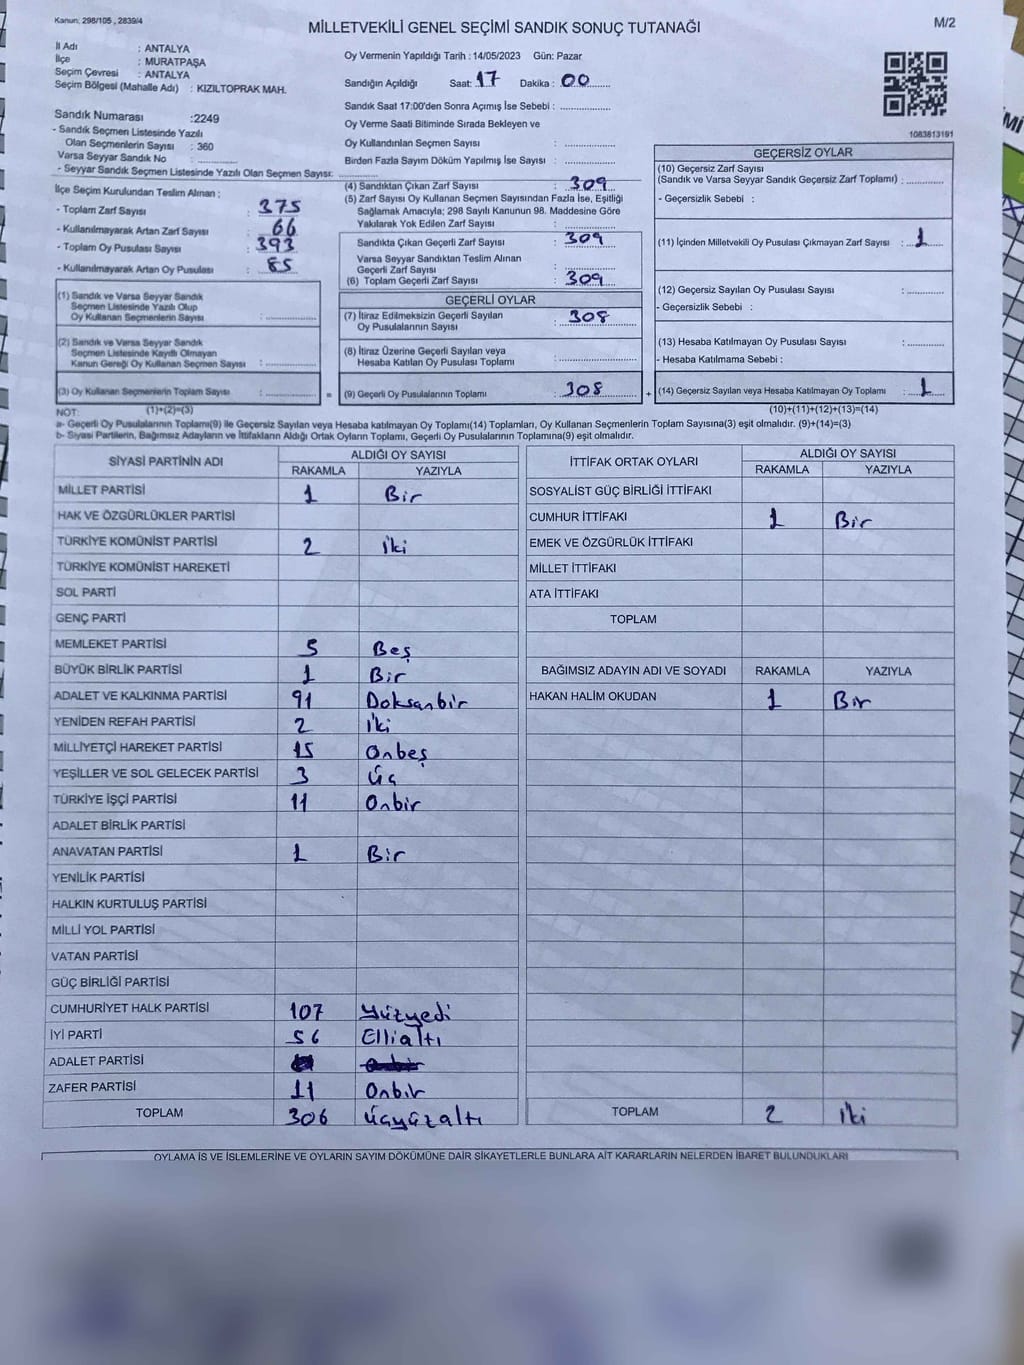 Kanun: 298/105 , 2839/4
MİLLETVEKİLİ GENEL SEÇİMİ SANDIK SONUÇ TUTANAĞI
M/2
İl Adı : ANTALYA
İlçe : MURATPAŞA
Seçim Çevresi : ANTALYA
Seçim Bölgesi (Mahalle Adı) : KIZILTOPRAK MAH.
Sandık Numarası :2249
- Sandık Seçmen Listesinde Yazılı
Olan Seçmenlerin Sayısı : 360
Varsa Seyyar Sandık No : ............
- Seyyar Sandık Seçmen Listesinde Yazılı Olan Seçmen Sayısı: ............
Oy Vermenin Yapıldığı Tarih : 14/05/2023 Gün: Pazar
Sandığın Açıldığı Saat: 17 Dakika : 00
Sandık Saat 17:00'den Sonra Açımış İse Sebebi : ............
Oy Verme Saati Bitiminde Sırada Bekleyen ve
Oy Kullandırılan Seçmen Sayısı : ............
Birden Fazla Sayım Döküm Yapılmış İse Sayısı : ............
1083813191
İlçe Seçim Kurulundan Teslim Alınan ;
- Toplam Zarf Sayısı : 375
- Kullanılmayarak Artan Zarf Sayısı : 66
- Toplam Oy Pusulası Sayısı : 393
- Kullanılmayarak Artan Oy Pusulası : 85
(1) Sandık ve Varsa Seyyar Sandık
Seçmen Listesinde Yazılı Olup
Oy Kullanan Seçmenlerin Sayısı : ............
(2) Sandık ve Varsa Seyyar Sandık
Seçmen Listesinde Kayıtlı Olmayan
Kanun Gereği Oy Kullanan Seçmen Sayısı : ............
(3) Oy Kullanan Seçmenlerin Toplam Sayısı : ............ =
(1)+(2)=(3)
(4) Sandıktan Çıkan Zarf Sayısı : 309
(5) Zarf Sayısı Oy Kullanan Seçmen Sayısından Fazla İse, Eşitliği
Sağlamak Amacıyla; 298 Sayılı Kanunun 98. Maddesine Göre
Yakılarak Yok Edilen Zarf Sayısı : ............
Sandıkta Çıkan Geçerli Zarf Sayısı : 309
Varsa Seyyar Sandıktan Teslim Alınan
Geçerli Zarf Sayısı : ............
(6) Toplam Geçerli Zarf Sayısı : 309
GEÇERLİ OYLAR
(7) İtiraz Edilmeksizin Geçerli Sayılan
Oy Pusulalarının Sayısı : 308
(8) İtiraz Üzerine Geçerli Sayılan veya
Hesaba Katılan Oy Pusulası Toplamı : ............
(9) Geçerli Oy Pusulalarının Toplamı : 308 +
GEÇERSİZ OYLAR
(10) Geçersiz Zarf Sayısı
(Sandık ve Varsa Seyyar Sandık Geçersiz Zarf Toplamı) : ............
- Geçersizlik Sebebi :
(11) İçinden Milletvekili Oy Pusulası Çıkmayan Zarf Sayısı : 1
(12) Geçersiz Sayılan Oy Pusulası Sayısı : ............
- Geçersizlik Sebebi :
(13) Hesaba Katılmayan Oy Pusulası Sayısı : ............
- Hesaba Katılmama Sebebi :
(14) Geçersiz Sayılan veya Hesaba Katılmayan Oy Toplamı : 1
(10)+(11)+(12)+(13)=(14)
NOT:
a- Geçerli Oy Pusulalarının Toplamı(9) ile Geçersiz Sayılan veya Hesaba katılmayan Oy Toplamı(14) Toplamları, Oy Kullanan Seçmenlerin Toplam Sayısına(3) eşit olmalıdır. (9)+(14)=(3)
b- Siyasi Partilerin, Bağımsız Adayların ve İttifakların Aldığı Ortak Oyların Toplamı, Geçerli Oy Pusulalarının Toplamına(9) eşit olmalıdır.
SİYASİ PARTİNİN ADI ALDIĞI OY SAYISI
RAKAMLA YAZIYLA
MİLLET PARTİSİ 1 Bir
HAK VE ÖZGÜRLÜKLER PARTİSİ
TÜRKİYE KOMÜNİST PARTİSİ 2 İki
TÜRKİYE KOMÜNİST HAREKETİ
SOL PARTİ
GENÇ PARTİ
MEMLEKET PARTİSİ 5 Beş
BÜYÜK BİRLİK PARTİSİ 1 Bir
ADALET VE KALKINMA PARTİSİ 91 Doksanbir
YENİDEN REFAH PARTİSİ 2 İki
MİLLİYETÇİ HAREKET PARTİSİ 15 Onbeş
YEŞİLLER VE SOL GELECEK PARTİSİ 3 Üç
TÜRKİYE İŞÇİ PARTİSİ 11 Onbir
ADALET BİRLİK PARTİSİ
ANAVATAN PARTİSİ 1 Bir
YENİLİK PARTİSİ
HALKIN KURTULUŞ PARTİSİ
MİLLİ YOL PARTİSİ
VATAN PARTİSİ
GÜÇ BİRLİĞİ PARTİSİ
CUMHURİYET HALK PARTİSİ 107 Yüzyedi
İYİ PARTİ 56 Ellialtı
ADALET PARTİSİ
ZAFER PARTİSİ 11 Onbir
TOPLAM 306 Üçyüzaltı
İTTİFAK ORTAK OYLARI ALDIĞI OY SAYISI
RAKAMLA YAZIYLA
SOSYALİST GÜÇ BİRLİĞİ İTTİFAKI
CUMHUR İTTİFAKI 1 Bir
EMEK VE ÖZGÜRLÜK İTTİFAKI
MİLLET İTTİFAKI
ATA İTTİFAKI
TOPLAM
BAĞIMSIZ ADAYIN ADI VE SOYADI RAKAMLA YAZIYLA
HAKAN HALİM OKUDAN 1 Bir
TOPLAM 2 İki
OYLAMA İŞ VE İŞLEMLERİNE VE OYLARIN SAYIM DÖKÜMÜNE DAİR ŞİKAYETLERLE BUNLARA AİT KARARLARIN NELERDEN İBARET BULUNDUKLARI